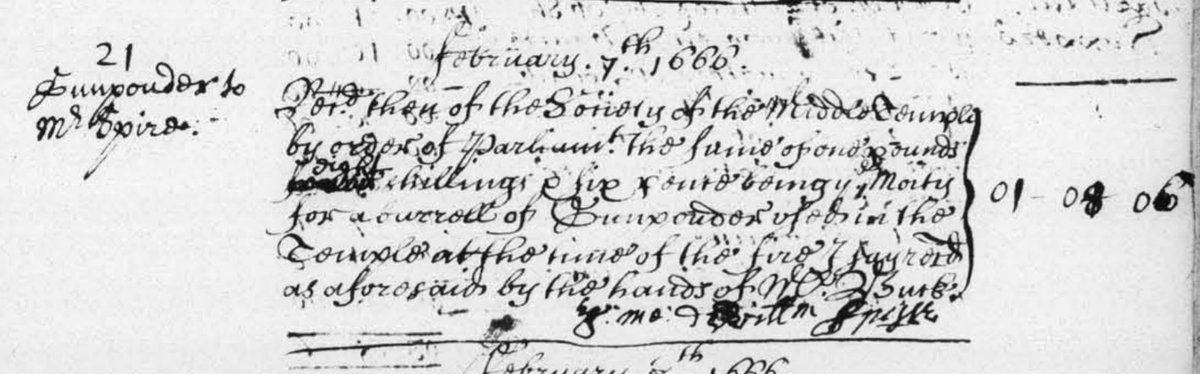 February. 7.th 1666.
21
Gunpouder to
Mr Spire.
Recd then of the Society of the Middle Temple
by order of Parliamt. the sume of one pounds
eight shillings & six pence being ye Moity
for a barrell of Gunpouder used in the
Temple at the time of the fire I say recd
as aforesaid by the hands of Mr. Buck.
01 - 08 - 06
p. me Willm Spire
February 7th 1666